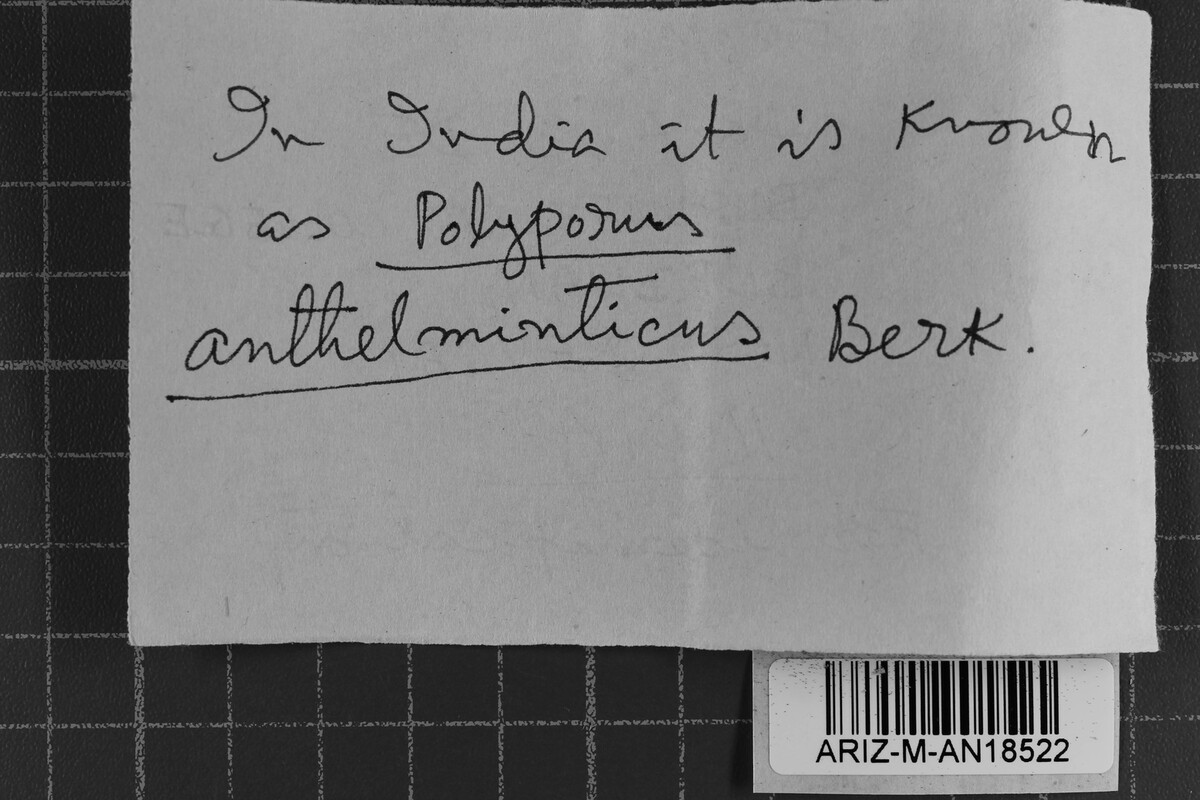 In India it is known
as Polyporus
anthelminticus Berk.
ARIZ-M-AN18522